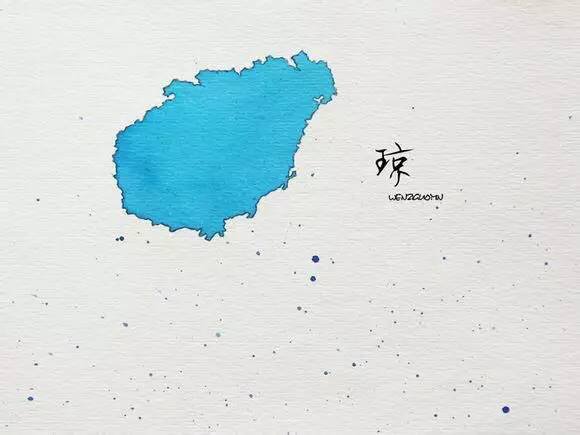 琼
WENZGUOMN